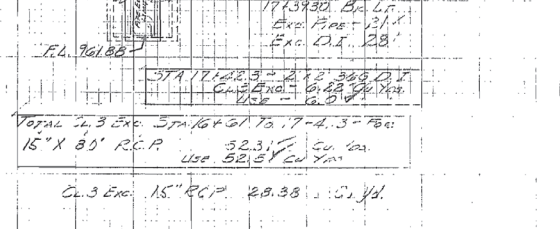 17+39.30 Bk. Lt.
Exc. Pipe - 31'
Exc. D.I. 28'
F.L. 961.88
STA. 17+42.3 - 2' x 2' 36G D.I.
CL.3 Exc. - 6.22 Cu. Yds.
Use - 6.0
TOTAL CL.3 Exc. Sta 16+61 To For:
15" X 80' R.C.P. 52.31 Cu. Yds.
Use 52.5 Cu Yds
CL.3 Exc. 15" RCP 28.38 Cu. Yd.